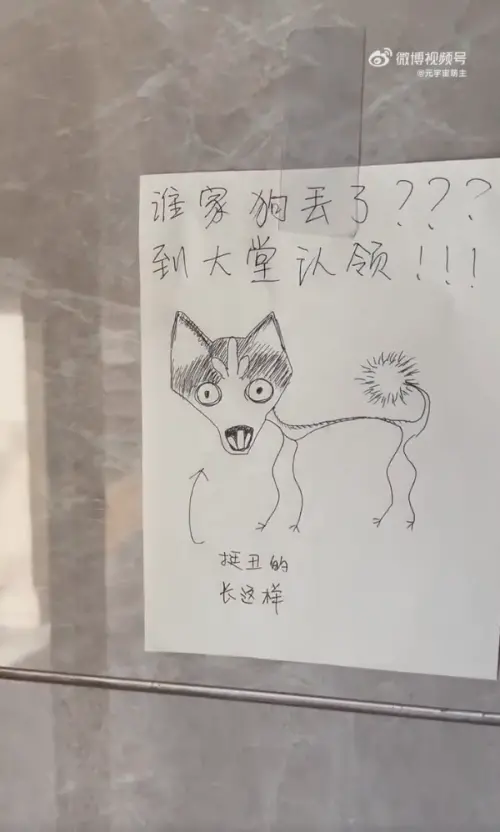 微博视频号
@元宇宙萌主
谁家狗丢了???
到大堂认领!!!
挺丑的
长这样